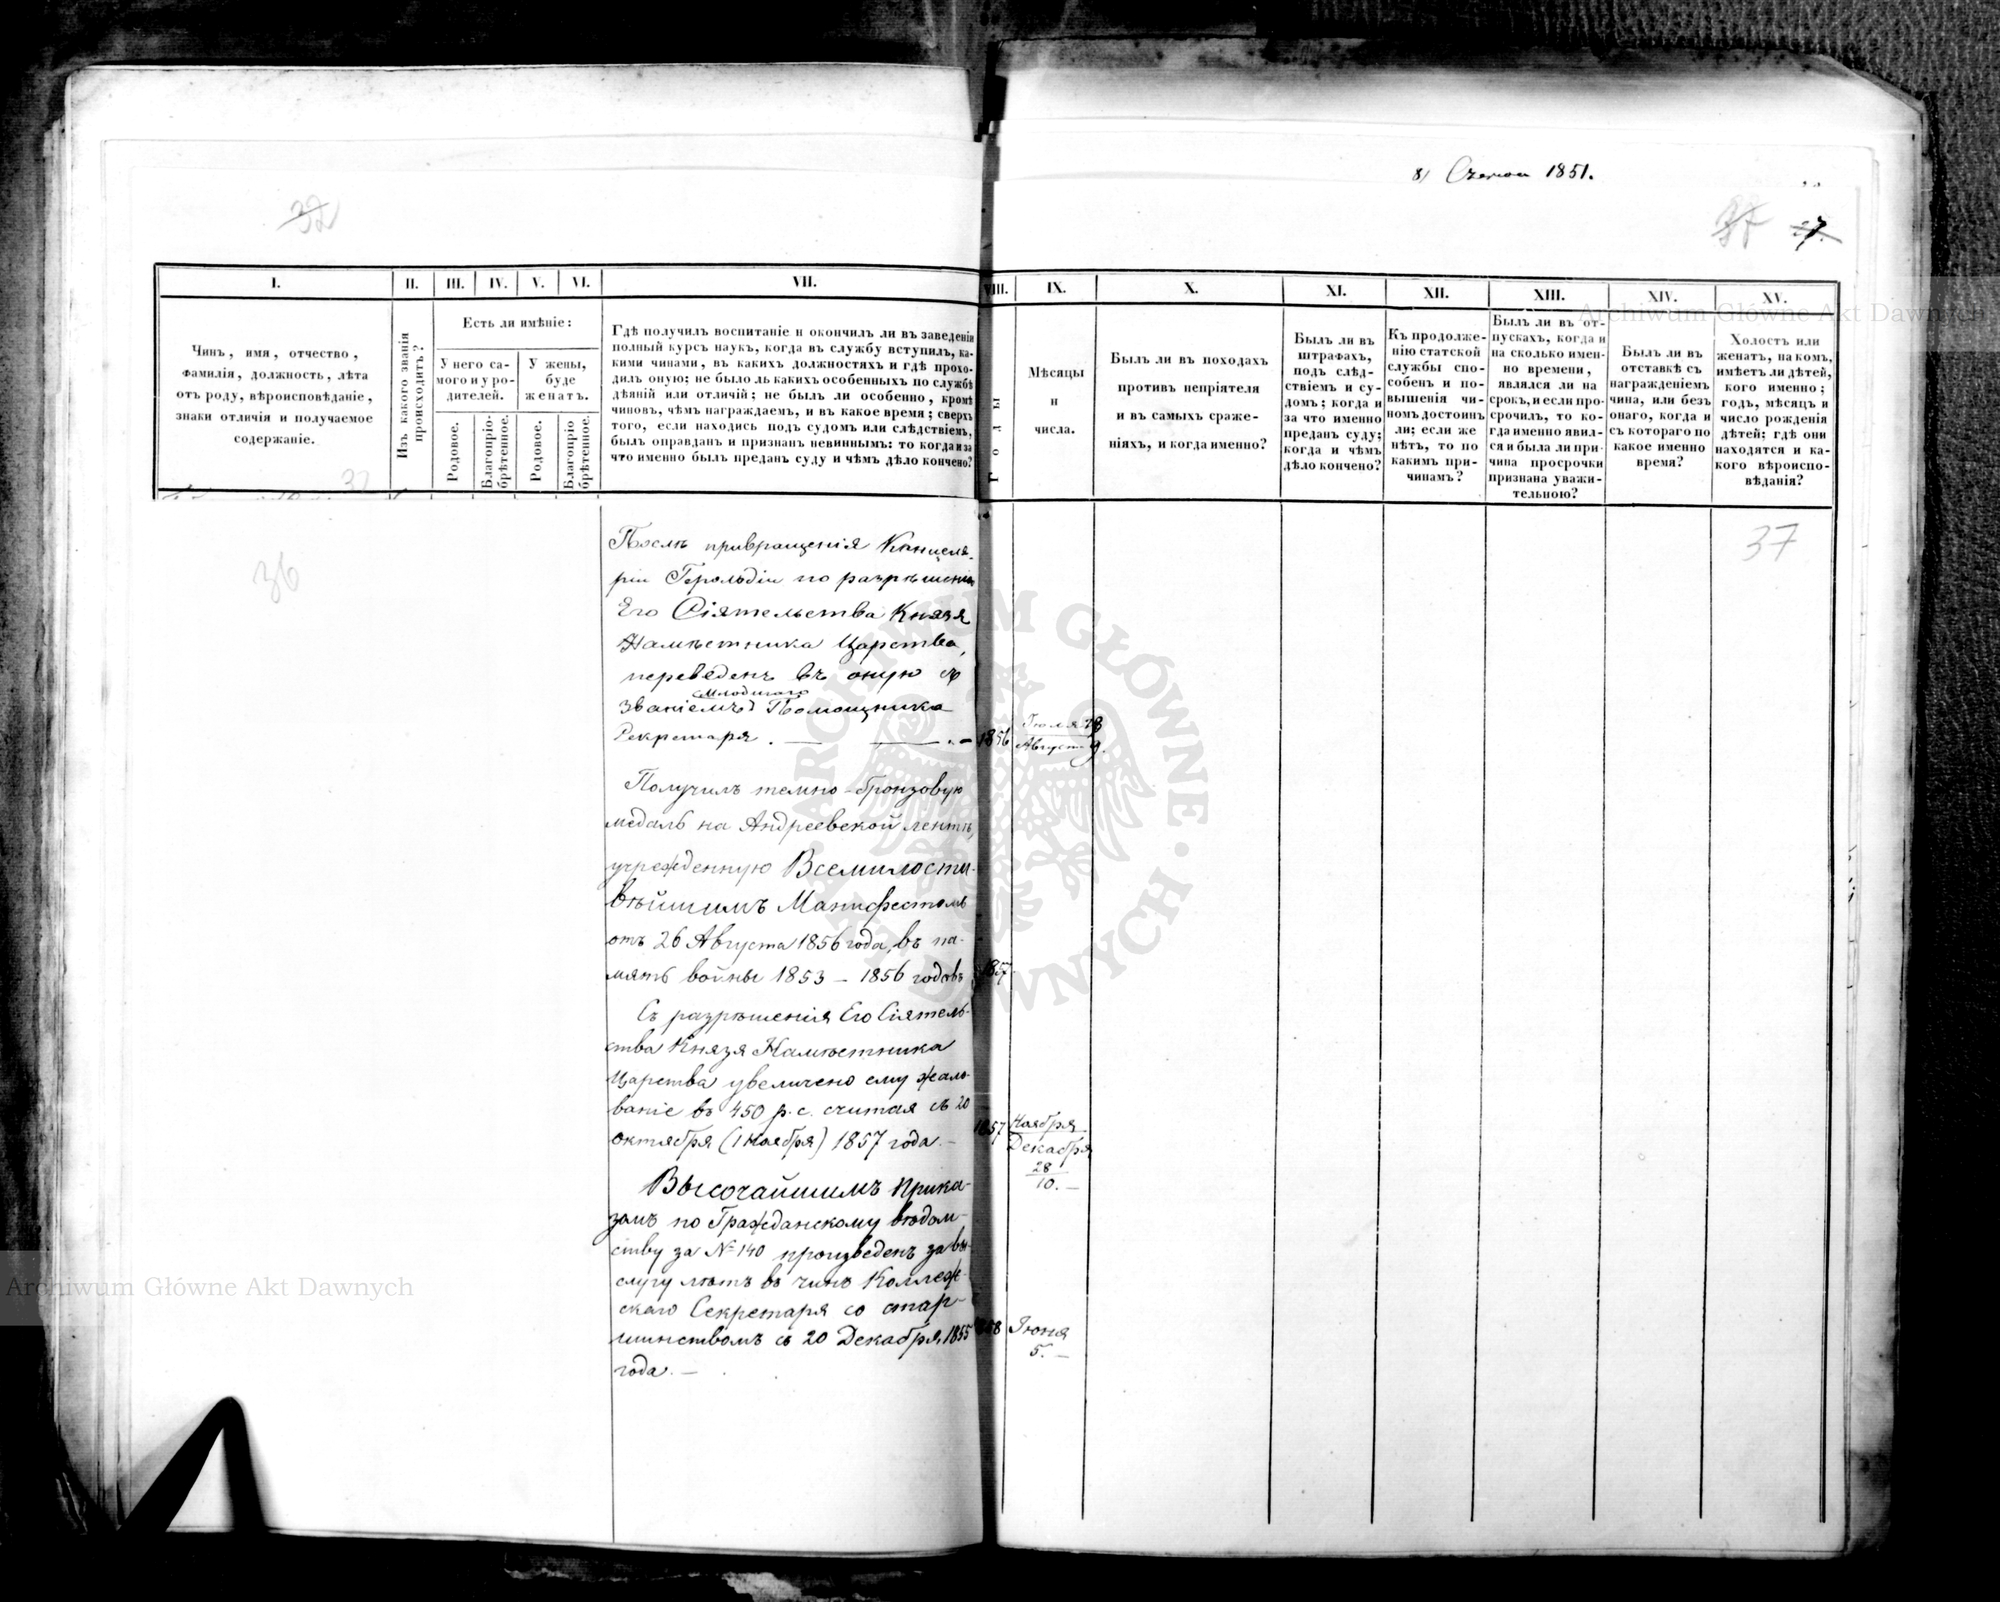 8/ Czerwca 1851.
32
37 27.
I.
II.
III.
IV.
V.
VI.
VII.
VIII.
IX.
X.
XI.
XII.
XIII.
XIV.
XV.
Чинъ, имя, отчество,
фамилія, должность, лѣта
отъ роду, вѣроисповѣданіе,
знаки отличія и получаемое
содержаніе.
Изъ какого званія
происходитъ?
Есть ли имѣніе:
У него са-
мого и у ро-
дителей.
У жены,
буде
женатъ.
Родовое.
Благопріо-
брѣтенное.
Родовое.
Благопріо
брѣтенное.
Гдѣ получилъ воспитаніе и окончилъ ли въ заведеніи
полный курсъ наукъ, когда въ службу вступилъ, ка-
кими чинами, въ какихъ должностяхъ и гдѣ прохо-
дилъ оную; не было ль какихъ особенныхъ по службѣ
дѣяній или отличій; не былъ ли особенно, кромѣ
чиновъ, чѣмъ награждаемъ, и въ какое время; сверхъ
того, если находись подъ судомъ или слѣдствіемъ,
былъ оправданъ и признанъ невиннымъ: то когда и за
что именно былъ преданъ суду и чѣмъ дѣло кончено?
Годы
Мѣсяцы
и
числа.
Былъ ли въ походахъ
противъ непріятеля
и въ самыхъ сраже-
ніяхъ, и когда именно?
Былъ ли въ
штрафахъ,
подъ слѣд-
ствіемъ и су-
домъ; когда и
за что именно
преданъ суду;
когда и чѣмъ
дѣло кончено?
Къ продолже-
нію статской
службы спо-
собенъ и по-
вышенія чи-
номъ достоинъ
ли; если же
нѣтъ, то по
какимъ при-
чинамъ?
Былъ ли въ от-
пускахъ, когда и
на сколько имен-
но времени,
являлся ли на
срокъ, и если про-
срочилъ, то ко-
гда именно явил-
ся и была ли при-
чина просрочки
признана уважи-
тельною?
Былъ ли въ
отставкѣ съ
награжденіемъ
чина, или безъ
онаго, когда и
съ котораго по
какое именно
время?
Холостъ или
женатъ, на комъ,
имѣетъ ли дѣтей,
кого именно;
годъ, мѣсяцъ и
число рожденія
дѣтей; гдѣ они
находятся и ка-
кого вѣроиспо-
вѣданія?
32
36
37
Послѣ превращенія Канцеля-
ріи Герольдіи по разрѣшенію
Его Сіятельства Князя
Намѣстника Царства,
переведенъ въ оную съ
Младшаго
званіемъ Помощника
Секретаря. — — . —
1856
Іюля 28
Август 9.
Получилъ темно-бронзовую
медаль на Андреевской лентѣ,
учрежденную Всемилости-
вѣйшимъ Манифестомъ
отъ 26 Августа 1856 года, въ па-
мять войны 1853 — 1856 годовъ
1857
Съ разрѣшенія Его Сіятель-
ства Князя Намѣстника
Царства увеличено ему жало-
ваніе въ 450 р. с. считая съ 20
октября (1 Ноября) 1857 года. —
1857
Ноября
Декабря
28
10. —
Высочайшимъ Прика-
зомъ по Гражданскому вѣдом-
ству за № 140 произведенъ за вы-
слугу лѣтъ въ чинъ Коллеж-
скаго Секретаря со стар-
шинствомъ съ 20 Декабря 1855
года. —
1858
Іюня
5. —
Archiwum Główne Akt Dawnych
Archiwum Główne Akt Dawnych
ARCHIWUM GŁÓWNE AKT DAWNYCH